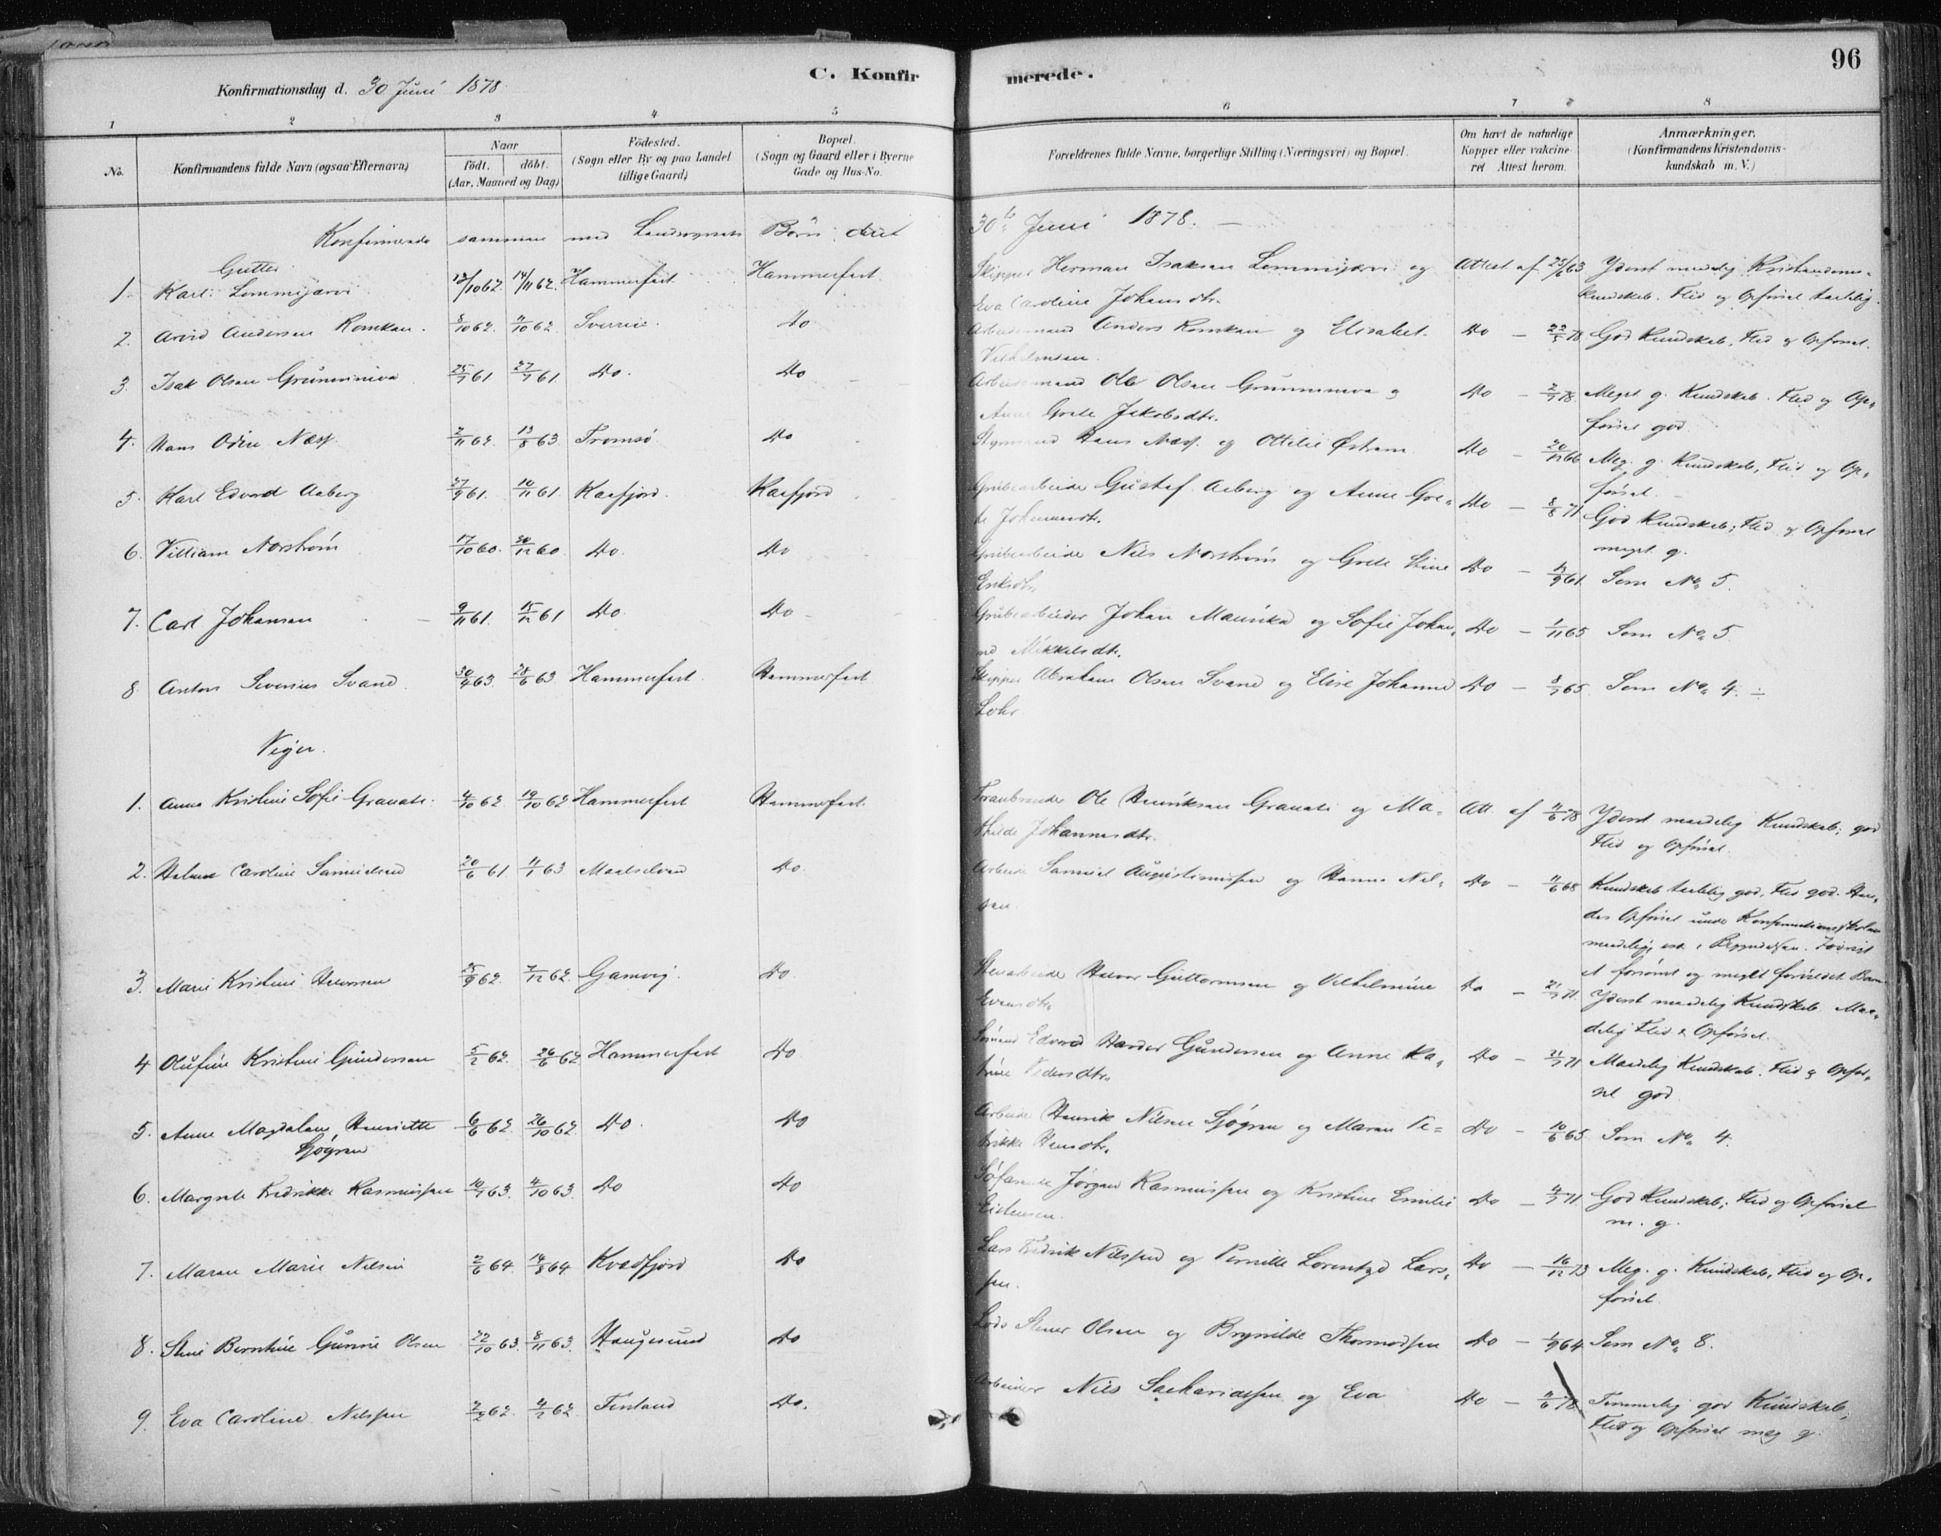 96
C. Konfirmerede.
Konfirmationsdag d. 30 Juni 1878.
1 2 3 4 5 6 7 8
No.
Konfirmandens fulde Navn (ogsaa Efternavn)
Naar
födt. döbt.
(Aar, Maaned og Dag)
Födested.
(Sogn eller By og paa Landet
tillige Gaard)
Bopæl.
(Sogn og Gaard eller i Byerne
Gade og Hus-No.
Forældrenes fulde Navne, borgerlige Stilling (Næringsvei) og Bopæl.
Om havt de naturlige
Kopper eller vakcine-
ret Attest herom.
Anmærkninger.
(Konfirmandens Kristendoms-
kundskab m. V.)
Konfirmerede sammen med Landsognets Börn 30te Juni 1878. —
Gutter
1. Karl Lemmijærvi 12/10 62 14/11 62 Hammerfest Hammerfest Skipper Herman Isaksen Lemmijærvi og Attest af 63 Yderst maadelig Kristendoms-
Eva Caroline Johansdtr. kundskab. Flid og Opførsel taalelig.
2. Arvid Andersen Romkan. 8/10 62 9/10 62 Sverrie. Do Arbeidsmand Anders Romkan og Elisabet Do — 22/5 78 God Kundskab, Flid og Opførsel.
Vilhelmsen.
3. Isak Olsen Grunmniva 25/7 61 27/7 61 Do. Do Arbeidsmand Ole Olsen Grunmniva og Do — 78. Meget g. Kundskab. Flid og Op-
Anne Grete Jakobsdtr. førsel god
4. Hans Odin Næss 2/11 62 13/8 63 Tromsø Do Styrmand Hans Næss. og Ottilie Østrem Do — 66 Meg. g. Kundskab, Flid og Op-
førsel.
5. Karl Edvard Aaberg 27/9 61. 10/11 61 Kaafjord. Kaafjord Grubearbeider Gustaf Aaberg og Anne Gre- Do — 8/8 71 God Kundskab; Flid og Opførsel
te Johannesdtr. meget g.
6. Villiam Norström 17/10 60. 30/12 60. Do. Do Grubearbeider Nils Norström og Grete Stine Do — 61 Som No. 5.
Eriksdtr.
7. Carl Johansen 9/11 61. 15/12 61 Do Do Grubearbeider Johan Maunika og Sofie Johan- Do — 1/11 65 Som No. 5
ne Mikkelsdtr.
8 Anton Severius Svane. 30/4 63. 28/6 63 Hammerfest. Hammerfest Skipper Abraham Olsen Svane og Elise Johanne Do — 65. Som No. 4. ÷
Lohr
Piger.
1. Anna Kristine Sofie Granati. 4/10 62 19/10 62 Hammerfest Hammerfest Tranbrænder Ole Henriksen Granati og Ma- Att. af 78 Yderst maadelig Kundskab; god
thilde Johannesdtr. Flid og Opførsel.
2. Caroline Samuelsen 20/6 61 63 Maalselven Do. Arbeider Samuel Augustinussen og Hanna Niel- Do — 68 Kundskab taalelig god, Flid god. Hen-
sen des Opførsel under Konfirmationsskolen
maadelig, i Begyndelsen.
et forsømt og meget forældet Barn
3. Marie Kristine Halvorsen 25/9 62 7/12 62 Gamvig. Do. Halvor Guttormsen og Vilhelmine Do — 21/7 71. Yderst maadelig Kundskab. Maa-
Evensdtr. delig Flid & Opførsel.
4 Olufine Kristine Gundersen 5/2 62. 26/6 62 Hammerfest Do Sømand Edvard Harder Gundersen og Anne Ka- Do — 21/7 71 Maadelig Kundskab. Flid og Opfør-
trine Pedersdtr. sel god
5. Anne Magdalene Henriette 6/6 62. 26/10 62. Do. Do Arbeider Henrik Nilsen Sjøgren og Maren Fre- Do — 10/6 65 Som No. 4.
Sjøgren drikke Hansdtr.
6. Margrete Fredrikke Rasmussen 10/7 63. 4/10 63. Do Do Søfarende Jørgen Rasmussen og Kristine Emilie Do — 71 God Kundskab; Flid og Opførsel
m. g.
7. Maren Marie Nilsen 2/6 64. 14/8 64. Kvædfjord Do Lars Fredrik Nilssen og Pernille Lorentze Lars- Do — 16/12 73 Meg. g. Kundskab, Flid og Op-
sen. førsel.
8. Stine Bernthine Gurine Olsen 22/10 63. 8/11 63. Haugesund Do Lods Stener Olsen og Brynilde Thormodsen Do — 64 Som No. 8.
9. Eva Caroline Nilssen 2/2 62. 4/2 62 Finland Do. Arbeider Nils Sachariassen og Eva Do — 78 Temmelig god Kundskab,
Flid og Opførsel meg g.